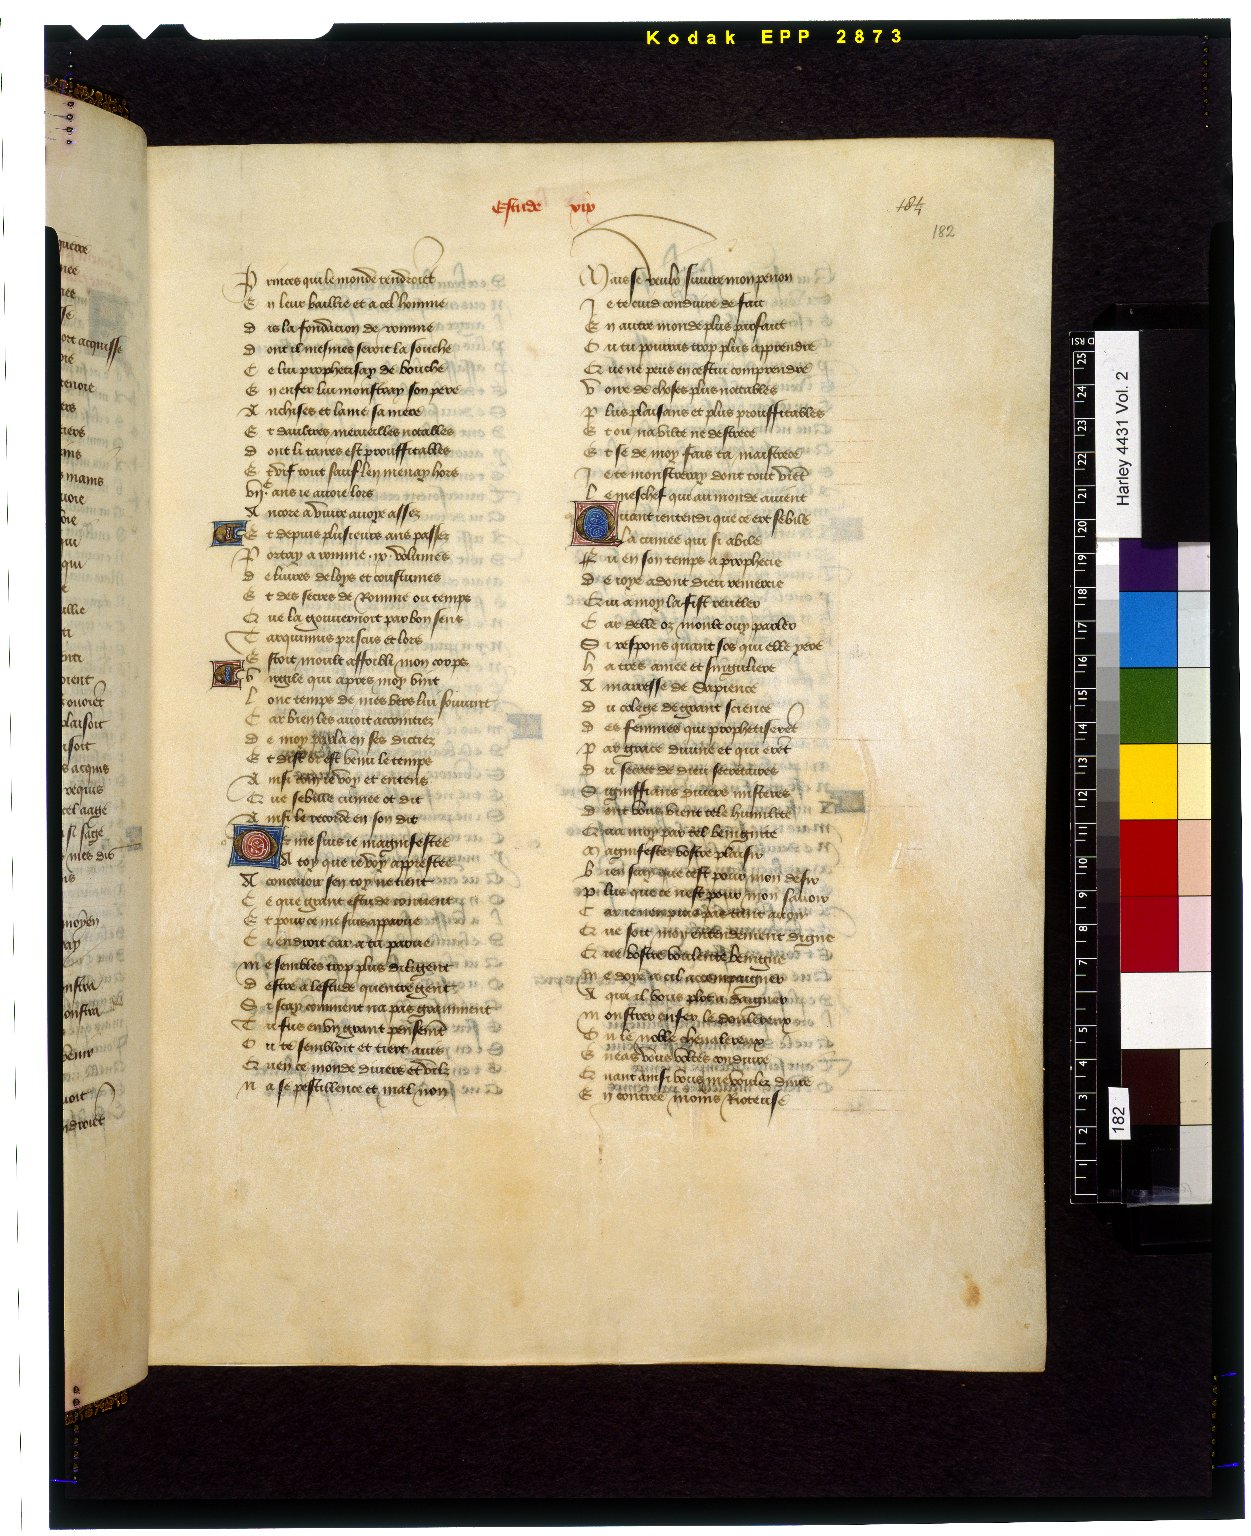 Kodak EPP 2873
Estude xix
184
182
Princes qui le monde tendroiet
En leur baillie et a cel homme
dis la fondacion de romme
dont il mesmes seroit la souche
Ce lui prophetisay de bouche
En enfer lui monstray son pere
Anchises et lame sa mere
Et daultres merueilles notables
dont li tanres est prouffitables
Et vif tout sauf len menay hors
vijc ans ie auoie lors
Ancore a viure auoye assez
Et depuis plusieurs ans passez
Portay a romme ix volumes
de liures de loys et coustumes
Et des secres de Romme ou temps
Que la gouuernoit par bon sens
Tarquinius priscus et lors
Estoit moult affoibli mon corps
Virgile qui apres moy vint
Lonc temps de mes vers lui souuint
Car bien les auoit accointiez
de moy parla en ses dictiez
Et dist or est venu le temps
Ainsi com ie voy et entens
Que sebille cumee ot dit
Ainsi le recorde en son dit
Or me suis ie magnifestee
A toy que ie voy apprestee
A conceuoir sen toy ne tient
Ce que grant estude contient
Et pour ce me suis apparue
Ci endroit car a ta parue
me sembles trop plus diligent
destre a lestude quentre gent
Si scay comment na pas gramment
Tu fus en vn grant pensemt
Ou te sembloit et tiert auis
Quen ce monde diuers et vilz
na se pestillence et mal non
Mais se veulx suiure mon penon
Je te cuid conduire de fait
En autre monde plus parfait
Ou tu pourras trop plus apprendre
Que ne peus en cestui comprendre
Voire de choses plus notables
plus plaisans et plus prouffitables
Et ou na vilte ne destrece
Et se de moy fais ta maistrece
Je te monstreray dont tout vient
Le meschef qui au monde auient
Quant ientendi que ce ert sebile
La cumee qui si abile
Fu en son temps a prophecie
de ioye adont dieu remercie
Qui a moy la fist reueler
Car delle oz moult ouy parler
Si respons quant sos qui elle yere
ha tres amee et singuliere
Amarresse de Sapience
du colege de grant science
des femmes qui prophetiseret
par grace diuine et qui eret
du secret de dieu secretaires
Signiffians diuers misteres
dont vous vient tele humilite
Qua moy par tel benignite
Magnifestez vostre plaisir
bien scay que cest pour mon desir
plus que ce nest pour mon sauoir
Car ie nen pourroie pas tant auoir
Que soit moy entendement digne
Que vostre voulente benigne
me doye a cil accompaigner
A qui il vous plot a daigner
monstrer enfer le doulereux
Ou le noble cheualereux
Eneas vous voltes conduire
Quant ainsi vous me voulez duire
En contree moins Rioteuse
Harley 4431 Vol. 2
182